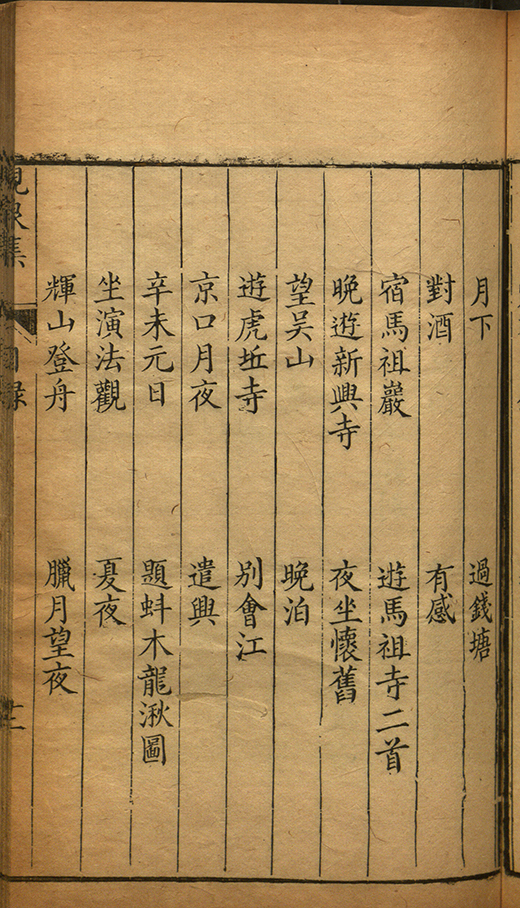 月下　過錢塘
對酒　有感
宿馬祖巖　遊馬祖寺二首
晚遊新興寺　夜坐懷舊
望吴山　晚泊
遊虎丘寺　别會江
京口月夜　遣興
辛未元日　題蚪木龍湫圖
坐演法觀　夏夜
輝山登舟　臘月望夜
集　目録